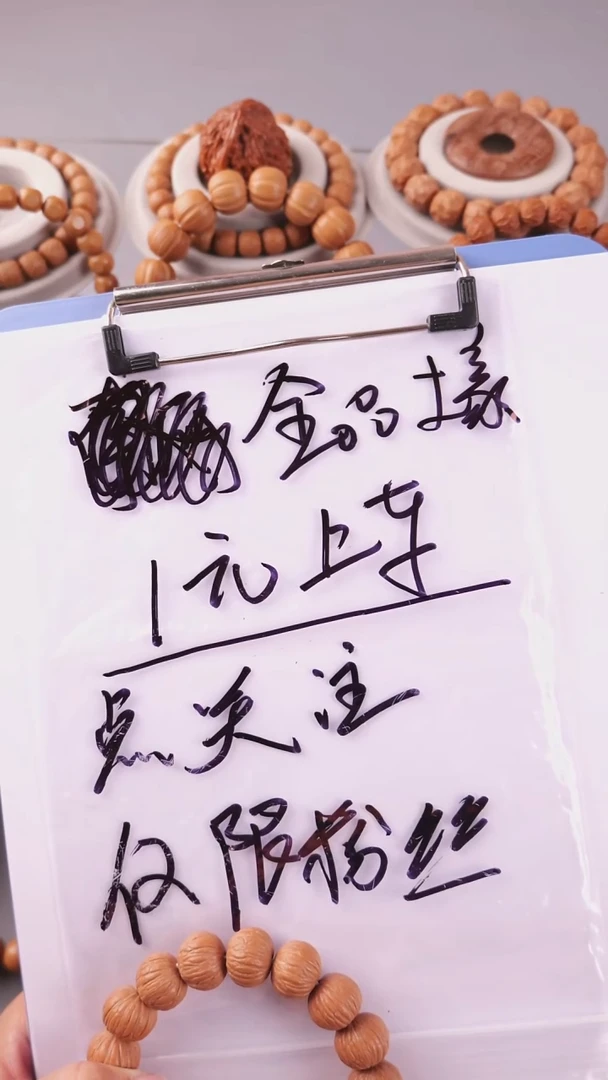 全品样
1元上车
点关注
仅限粉丝